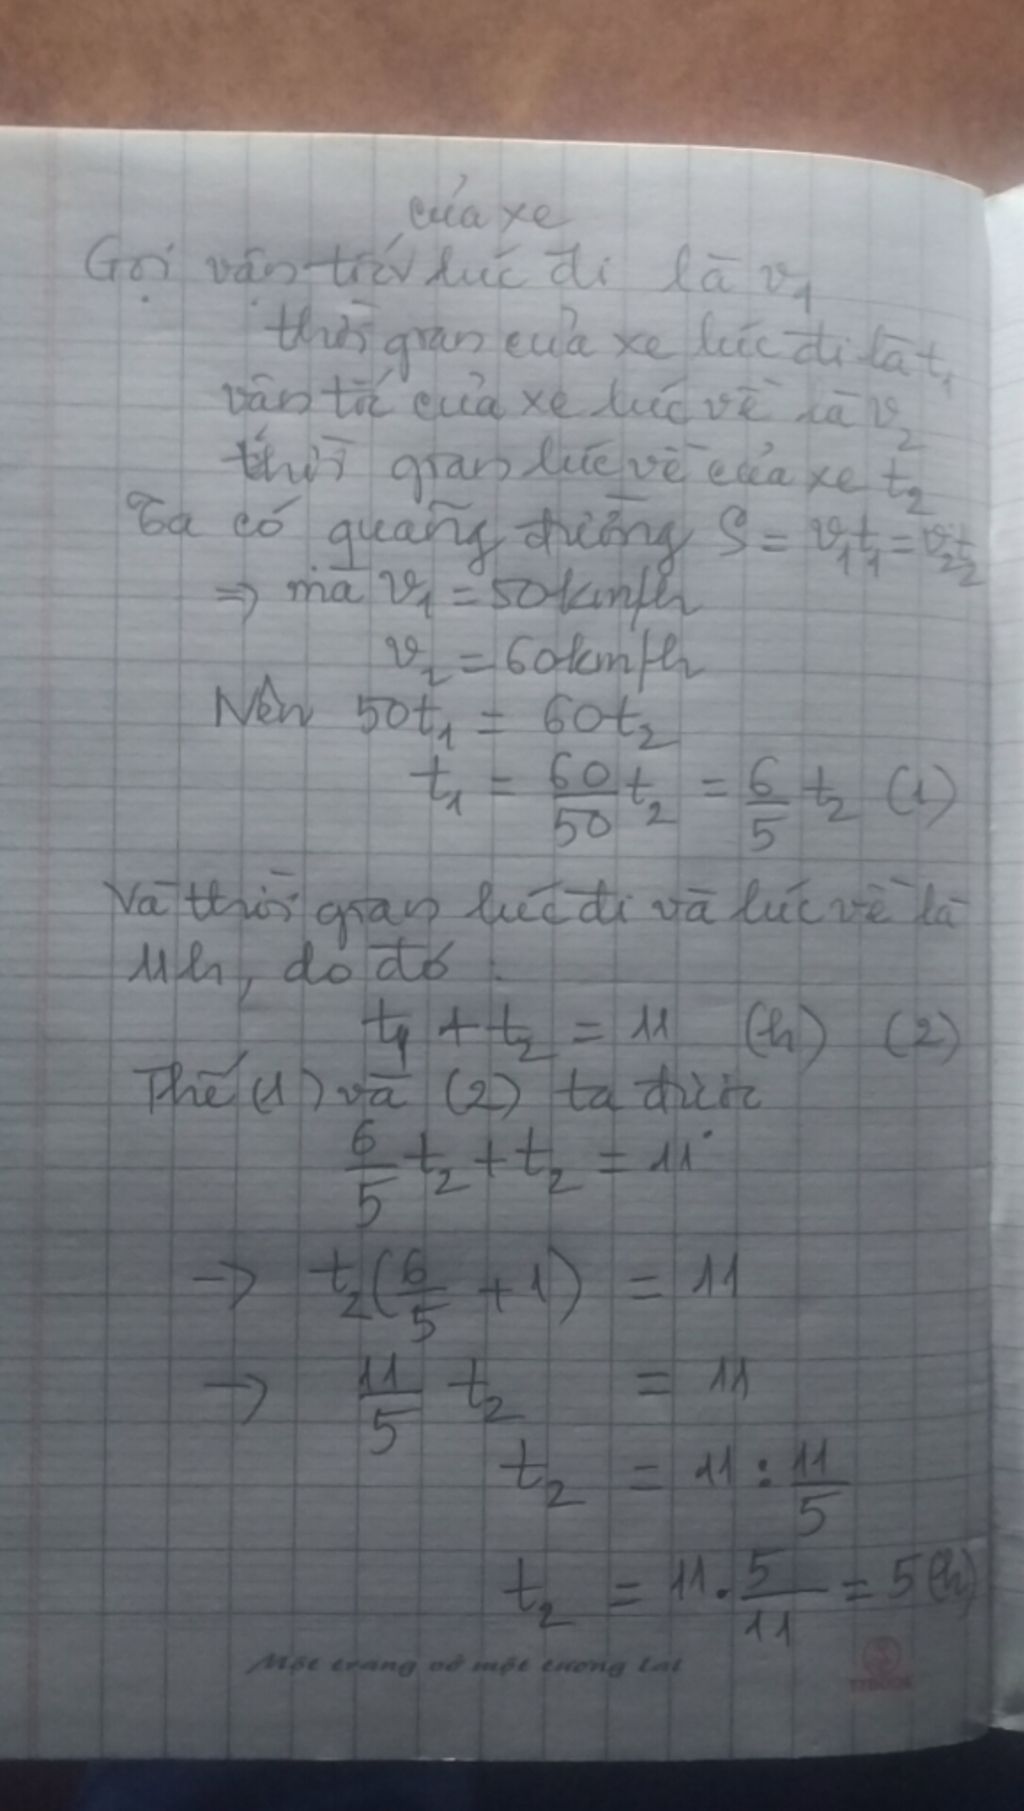 của xe
Gọi vận tốc lúc đi là v₁
thời gian của xe lúc đi là t₁
vận tốc của xe lúc về là v₂
thời gian lúc về của xe t₂
Ta có quãng đường S = v₁t₁ = v₂t₂
⇒ mà v₁ = 50km/h
v₂ = 60km/h
Nên 50t₁ = 60t₂
t₁ = 60/50 t₂ = 6/5 t₂ (1)
Và thời gian lúc đi và lúc về là
11h, do đó :
t₁ + t₂ = 11 (h) (2)
Thế (1) và (2) ta được
6/5 t₂ + t₂ = 11
→ t₂(6/5 + 1) = 11
→ 11/5 t₂ = 11
t₂ = 11 : 11/5
t₂ = 11 . 5/11 = 5(h)
Một trang vở một tương lai